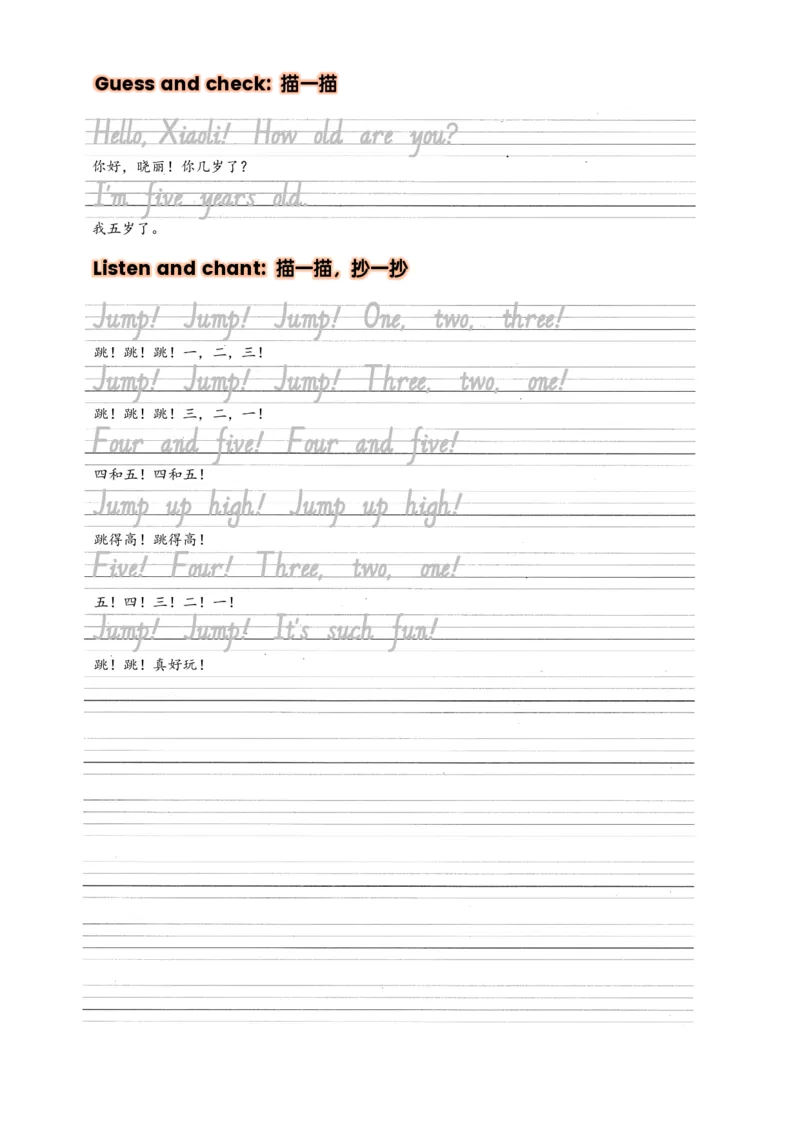 Guess and check: 描一描
Hello, Xiaoli! How old are you?
你好，晓丽！你几岁了？
I'm five years old.
我五岁了。
Listen and chant: 描一描，抄一抄
Jump! Jump! Jump! One, two, three!
跳！跳！跳！一，二，三！
Jump! Jump! Jump! Three, two, one!
跳！跳！跳！三，二，一！
Four and five! Four and five!
四和五！四和五！
Jump up high! Jump up high!
跳得高！跳得高！
Five! Four! Three, two, one!
五！四！三！二！一！
Jump! Jump! It's such fun!
跳！跳！真好玩！